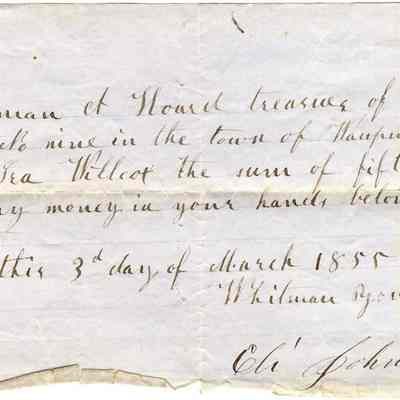 man A Hoard treasurer of
No nine in the town of Waupu
Ira Willcox the sum of fift
ny money in your hands belon
this 3d day of March 1855
Whitman
Eli John